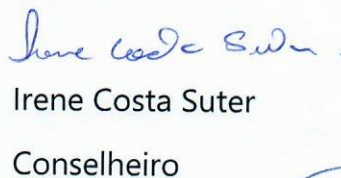 Irene Costa Suter
Irene Costa Suter
Conselheiro